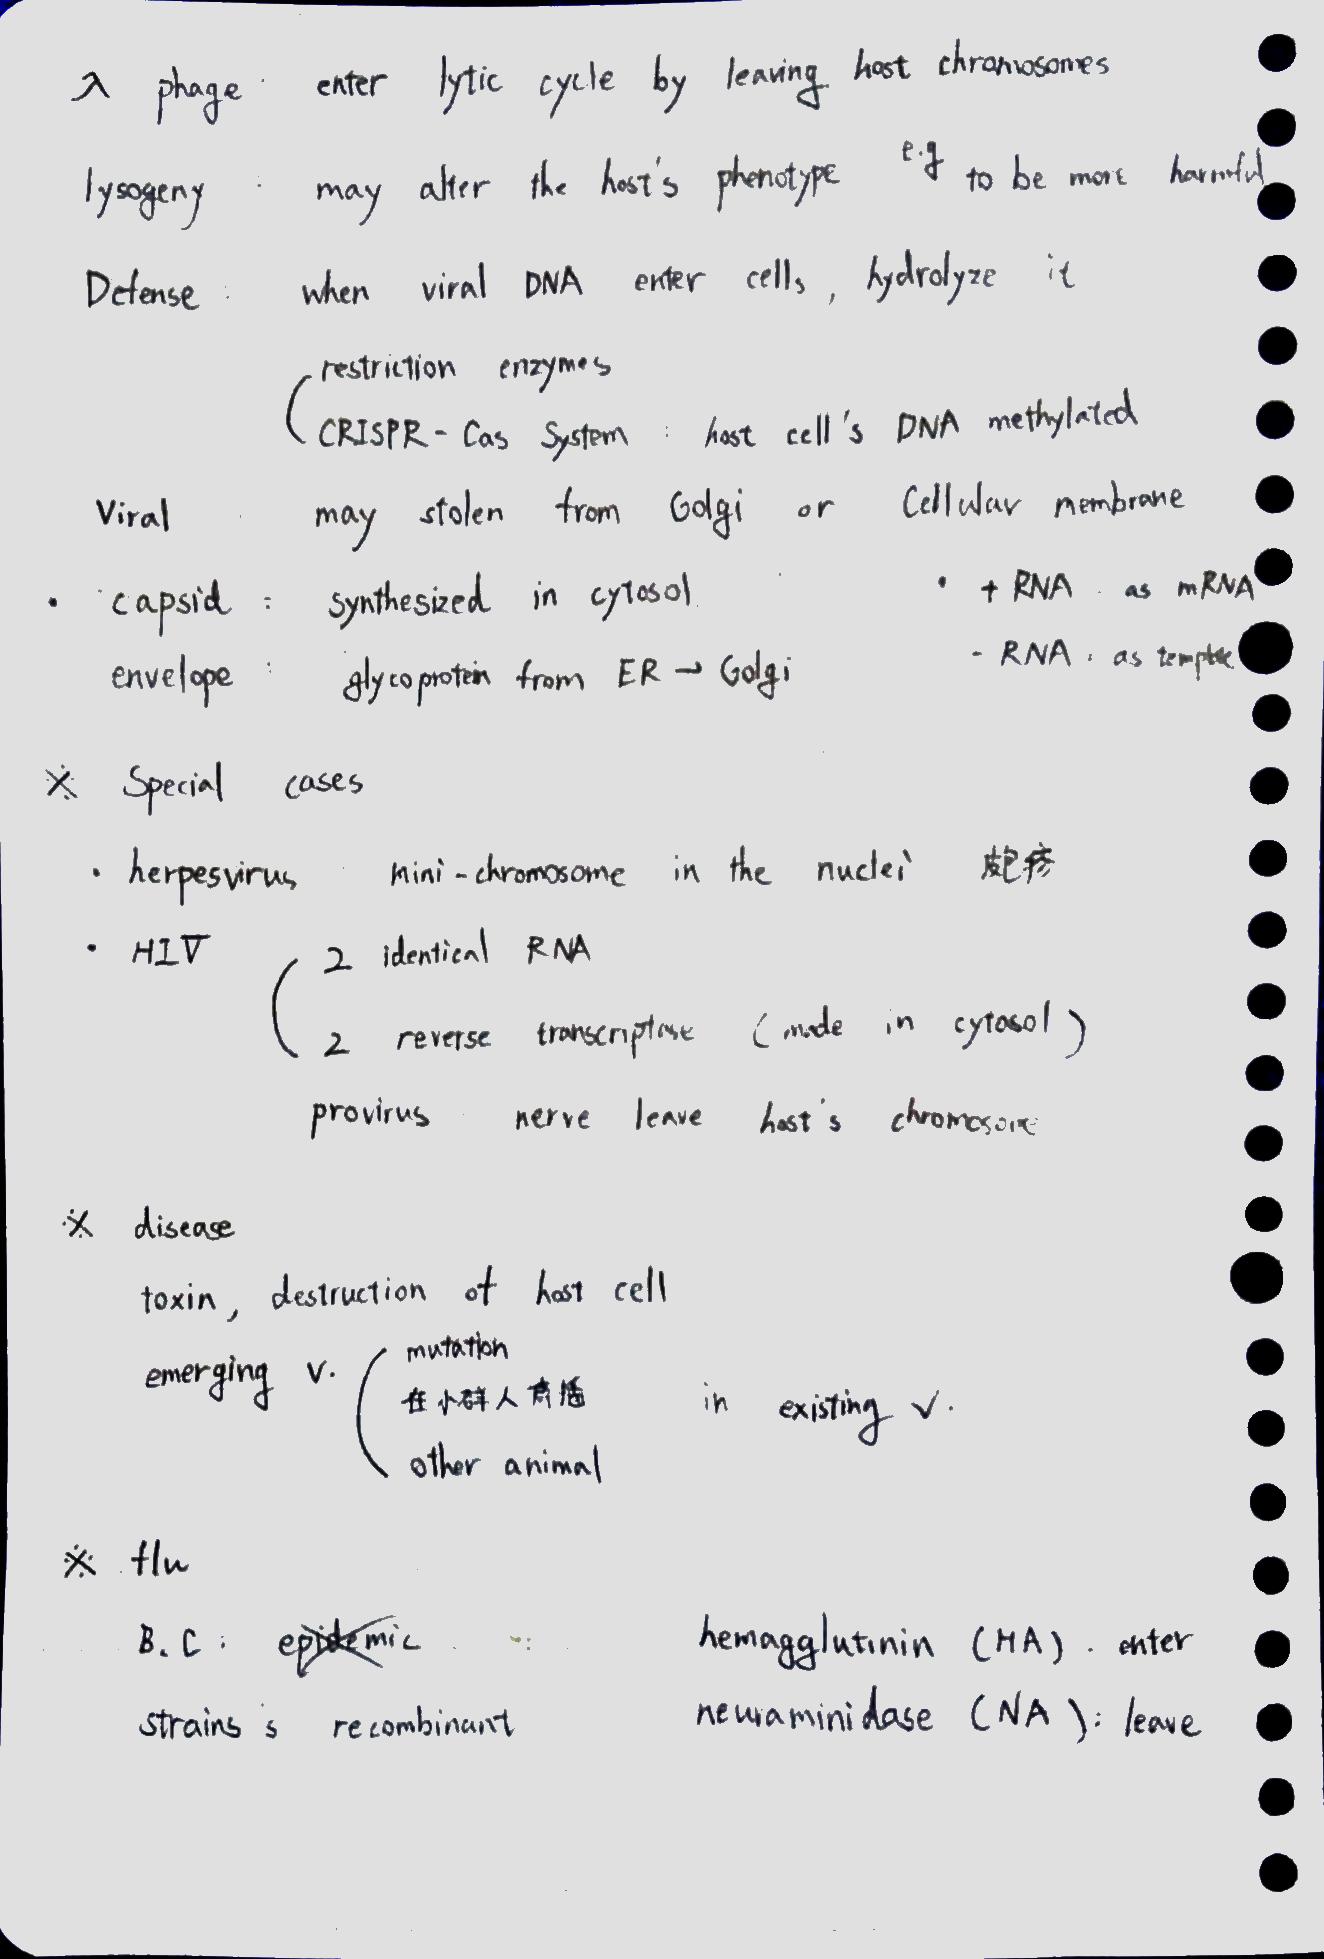 λ phage : enter lytic cycle by leaving host chromosomes
lysogeny : may alter the host's phenotype e.g to be more harmful
Defense : when viral DNA enter cells, hydrolyze it
restriction enzymes
CRISPR-Cas System : host cell's DNA methylated
Viral : may stolen from Golgi or Cellular membrane
• capsid : synthesized in cytosol
• + RNA : as mRNA
envelope : glycoprotein from ER → Golgi
- RNA : as template
※ Special cases
• herpesvirus : mini-chromosome in the nuclei 皰疹
• HIV 2 identical RNA
2 reverse transcriptase (made in cytosol)
provirus : nerve leave host's chromosome
※ disease
toxin, destruction of host cell
emerging v. mutation
在小群人 in existing v.
other animal
※ flu
B. C : epidemic : hemagglutinin (HA) : enter
strains's recombinant neuraminidase (NA) : leave